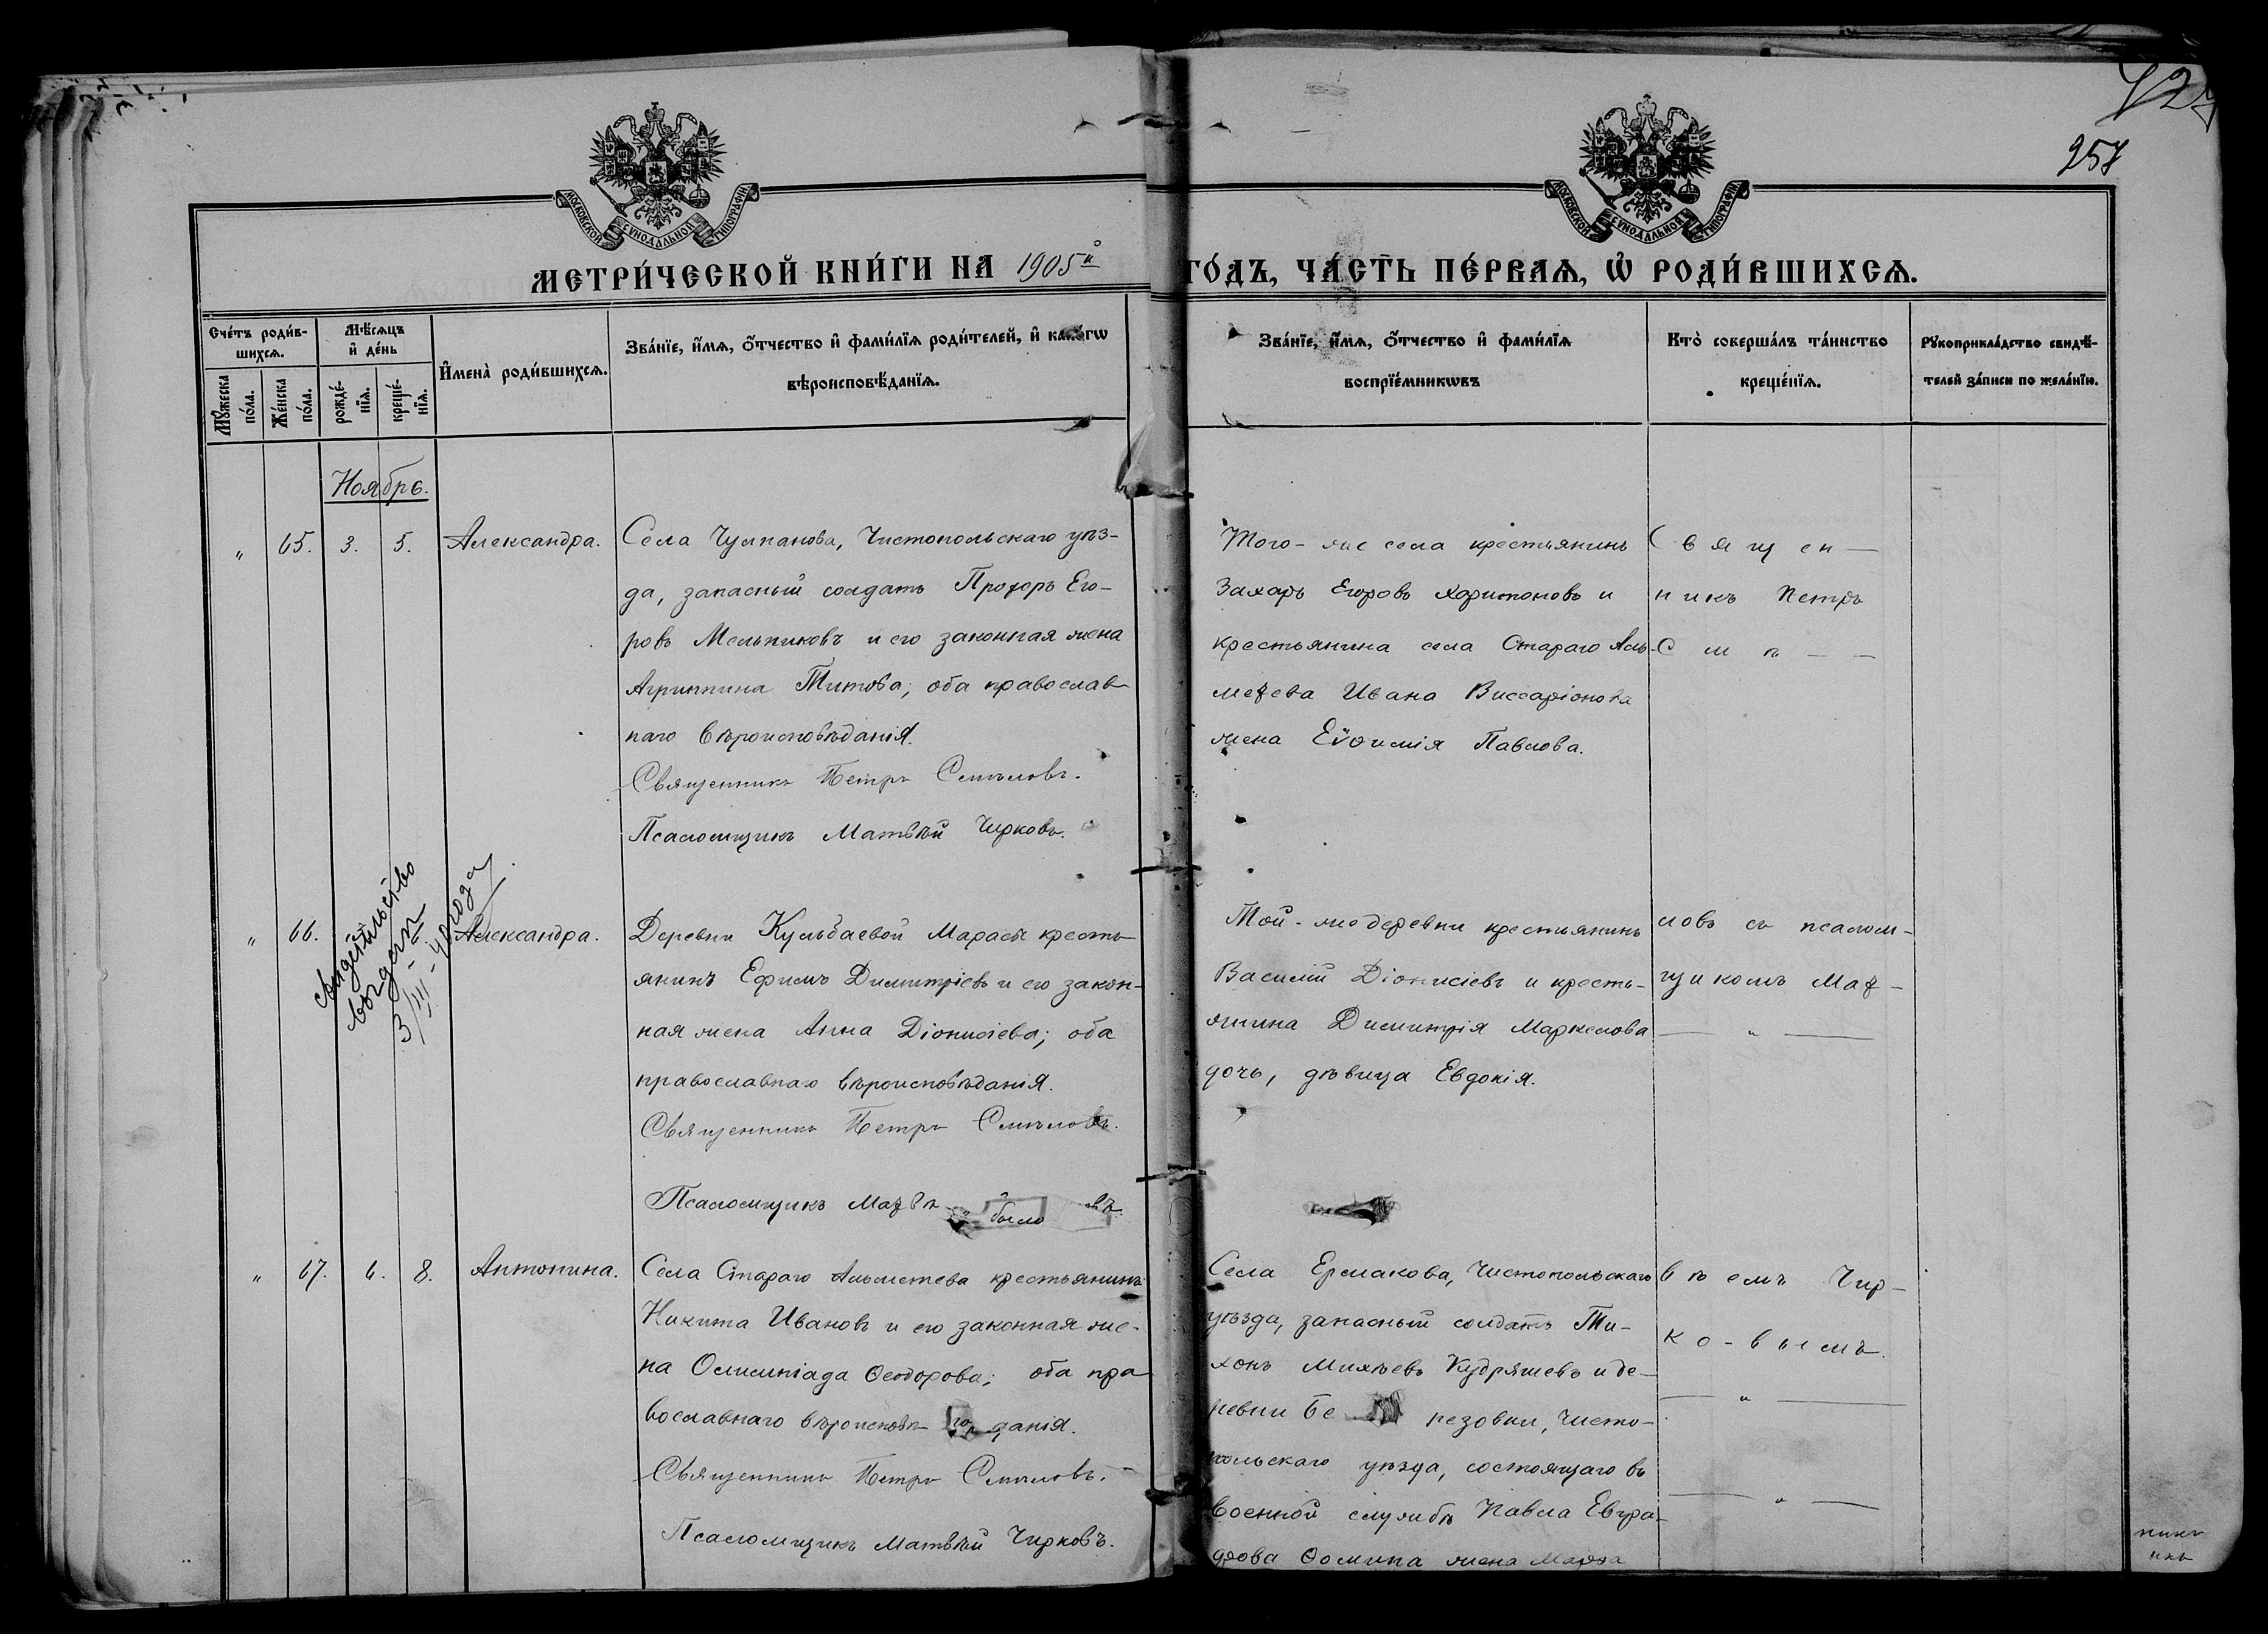 427
257
МОСКОВСКОЙ СѴНОДАЛЬНОЙ ТИПОГРАФІИ
МОСКОВСКОЙ СѴНОДАЛЬНОЙ ТИПОГРАФІИ
МЕТРИ́ЧЕСКОЙ КНИ́ГИ НА 1905й
ГО́ДЪ, ЧА́СТЬ ПЕ́РВАѦ, Ѽ РОДИ́ВШИХСѦ.
Сче́тъ роди́в-
шихсѧ.
Мꙋ́жеска
по́ла.
Же́нска
по́ла.
Мѣ́сѧцъ
и҆ де́нь
рожде́-
нїѧ.
креще́-
нїѧ.
И҆мена̀ роди́вшихсѧ.
Зва́нїе, и҆́мѧ, ѻ҆́тчество и҆ фами́лїѧ роди́телей, и҆ како́гѡ
вѣроисповѣ́данїѧ.
Зва́нїе, и҆́мѧ, ѻ҆́тчество и҆ фами́лїѧ
воспрїе́мникѡвъ
Кто̀ соверша́лъ та́инство
креще́нїѧ.
Рꙋкоприкла́дство свидѣ́-
телей за́писи по жела́нїю.
Ноябрь.
" 65. 3. 5. Александра.
Села Чулпанова, Чистопольскаго уѣз-
да, запасный солдатъ Прохоръ Его-
ровъ Мельниковъ и его законная жена
Агриппина Титова; оба православ-
наго вѣроисповѣданія.
Священникъ Петръ Смѣловъ.
Псаломщикъ Матвѣй Чирковъ.
Того-же села крестьянинъ
Захаръ Егоровъ Харитоновъ и
крестьянина села Стараго Аль-
метева Ивана Виссаріонова
жена Еѵѳимія Павлова.
Священ-
никъ Петръ
Смѣ - -
свидетельство
выдано
3/III-
года
" 66. Александра.
Деревни Кульбаевой Марасы кресть-
янинъ Ефимъ Димитріевъ и его закон-
ная жена Анна Діонисіева; оба
православнаго вѣроисповѣданія.
Священникъ Петръ Смѣловъ.
Псаломщикъ Матвѣ было въ.
Той-же деревни крестьянинъ
Василій Діонисіевъ и кресть-
янина Димитрія Маркелова
дочь, дѣвица Евдокія.
ловъ съ псалом-
щикомъ Мат-
— " —
" 67. 6. 8. Антонина.
Села Стараго Альметева крестьянинъ
Никита Ивановъ и его законная же-
на Олимпіада Ѳеодорова; оба пра-
вославнаго вѣроисповѣ данія.
Священникъ Петръ Смѣловъ.
Псаломщикъ Матвѣй Чирковъ.
Села Ермакова, Чистопольскаго
уѣзда, запасный солдатъ Ти-
хонъ Михѣевъ Кудряшевъ и де-
ревни Бе резовки, Чисто-
польскаго уѣзда, состоящаго въ
военной службѣ Павла Евгра-
фова Ѳомина жена Марѳа
вѣемъ Чир-
ко-вымъ.
— " —
— " —
никъ
икъ